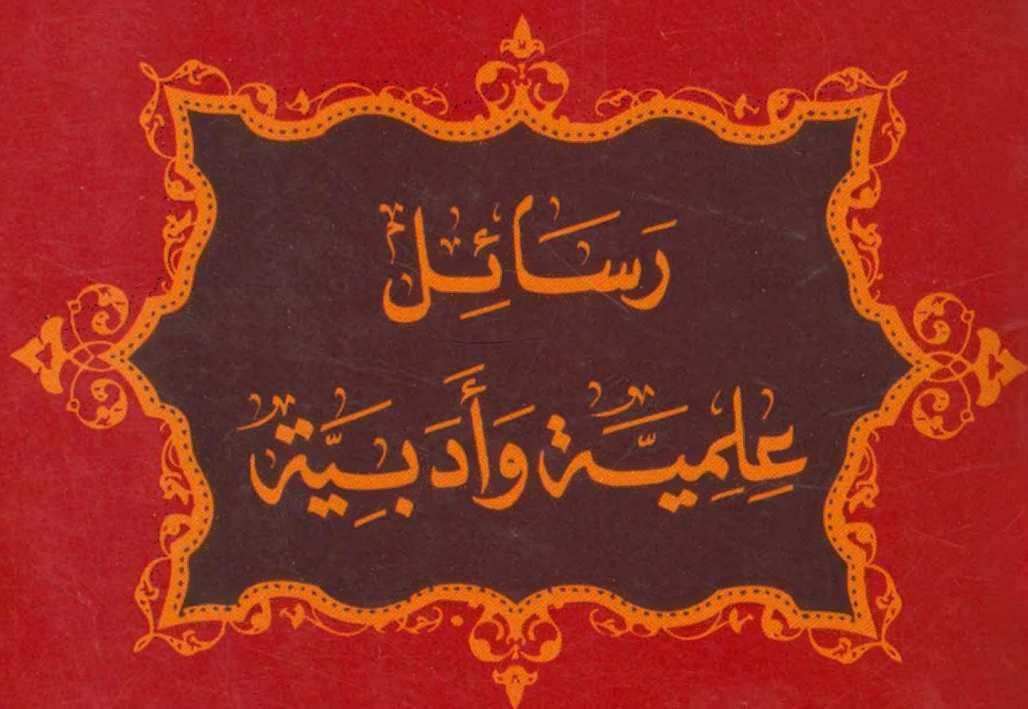 رَسَائِل
عِلمِيَّة وَأَدَبِيَّة